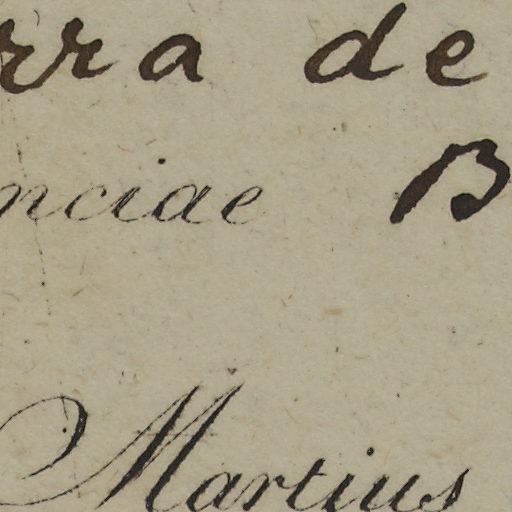 rra de
nciae B
Martius